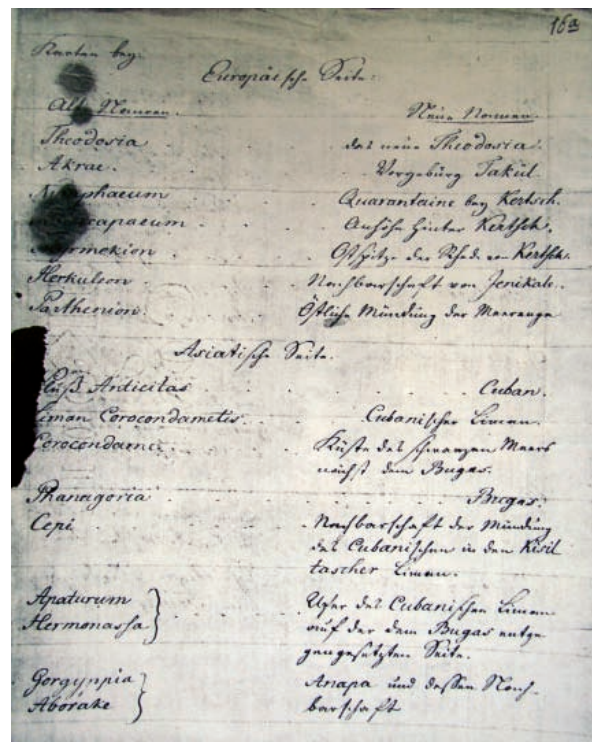 16a
Karten bey.
Europäische Seite.
Alte Namen. Neue Namen.
Theodosia das neue Theodosia.
Akrae. Vorgebürg Takul
Nymphaeum Quarantaine bey Kertsch.
capaeum Anhöhe hinter Kertsch.
Myrmekion Ostspitze der Rhed. von Kertsch.
Herkulson Nachbarschaft von Jenikale.
Parthenion. Östliche Mündung der Meerenge
Asiatische Seite.
Fluß Anticitas Cuban.
Liman Corocondametis. Cubanischer Liman.
Corocondame Küste des schwarzen Meers
nächst dem Bugas.
Phanagoria Bugas.
Cepi Nachbarschaft der Mündung
des Cubanischen in den Kisil
tascher Liman.
Apaturum Ufer des Cubanischen Liman
Hermonassa auf der dem Bugas entge
gengesetzten Seite.
Gorgyppia Anapa und dessen Nach-
Aborake barschaft